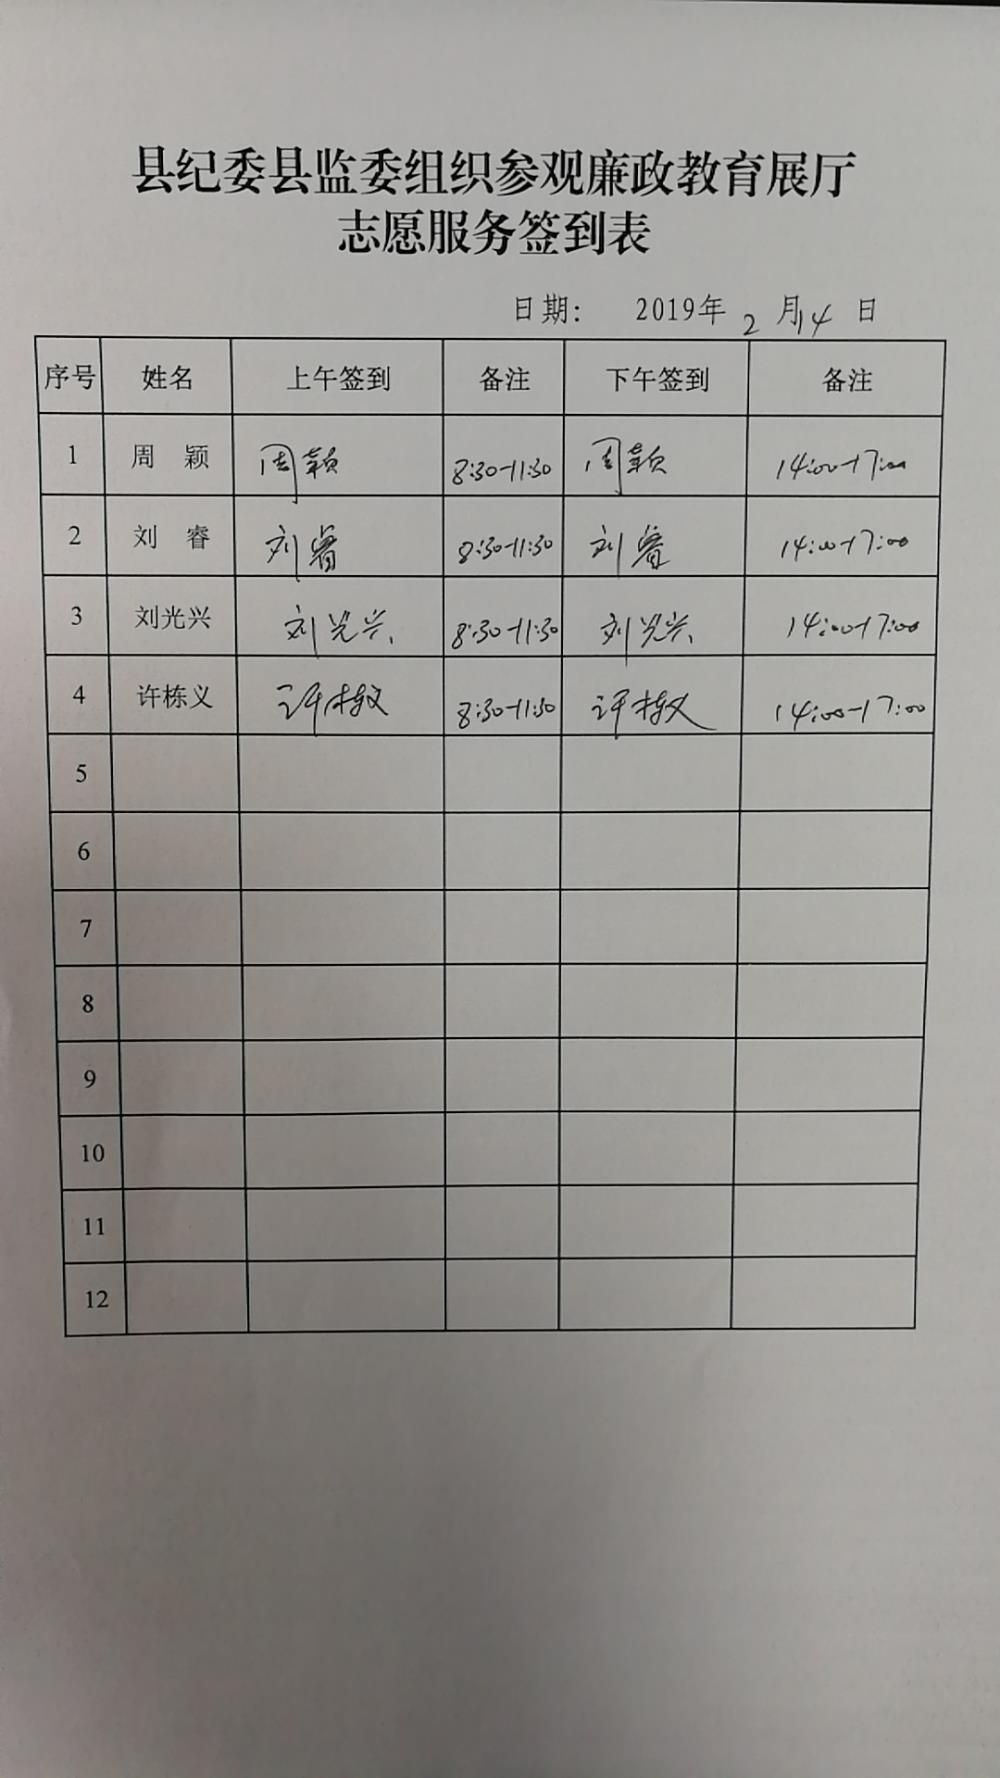 县纪委县监委组织参观廉政教育展厅
志愿服务签到表
日期： 2019年 2 月 14 日
序号 姓名 上午签到 备注 下午签到 备注
1 周 颖 周颖 8:30-11:30 周颖 14:00-17:00
2 刘 睿 刘睿 8:30-11:30 刘睿 14:00-17:00
3 刘光兴 刘光兴 8:30-11:30 刘光兴 14:00-17:00
4 许栋义 许栋义 8:30-11:30 许栋义 14:00-17:00
5
6
7
8
9
10
11
12